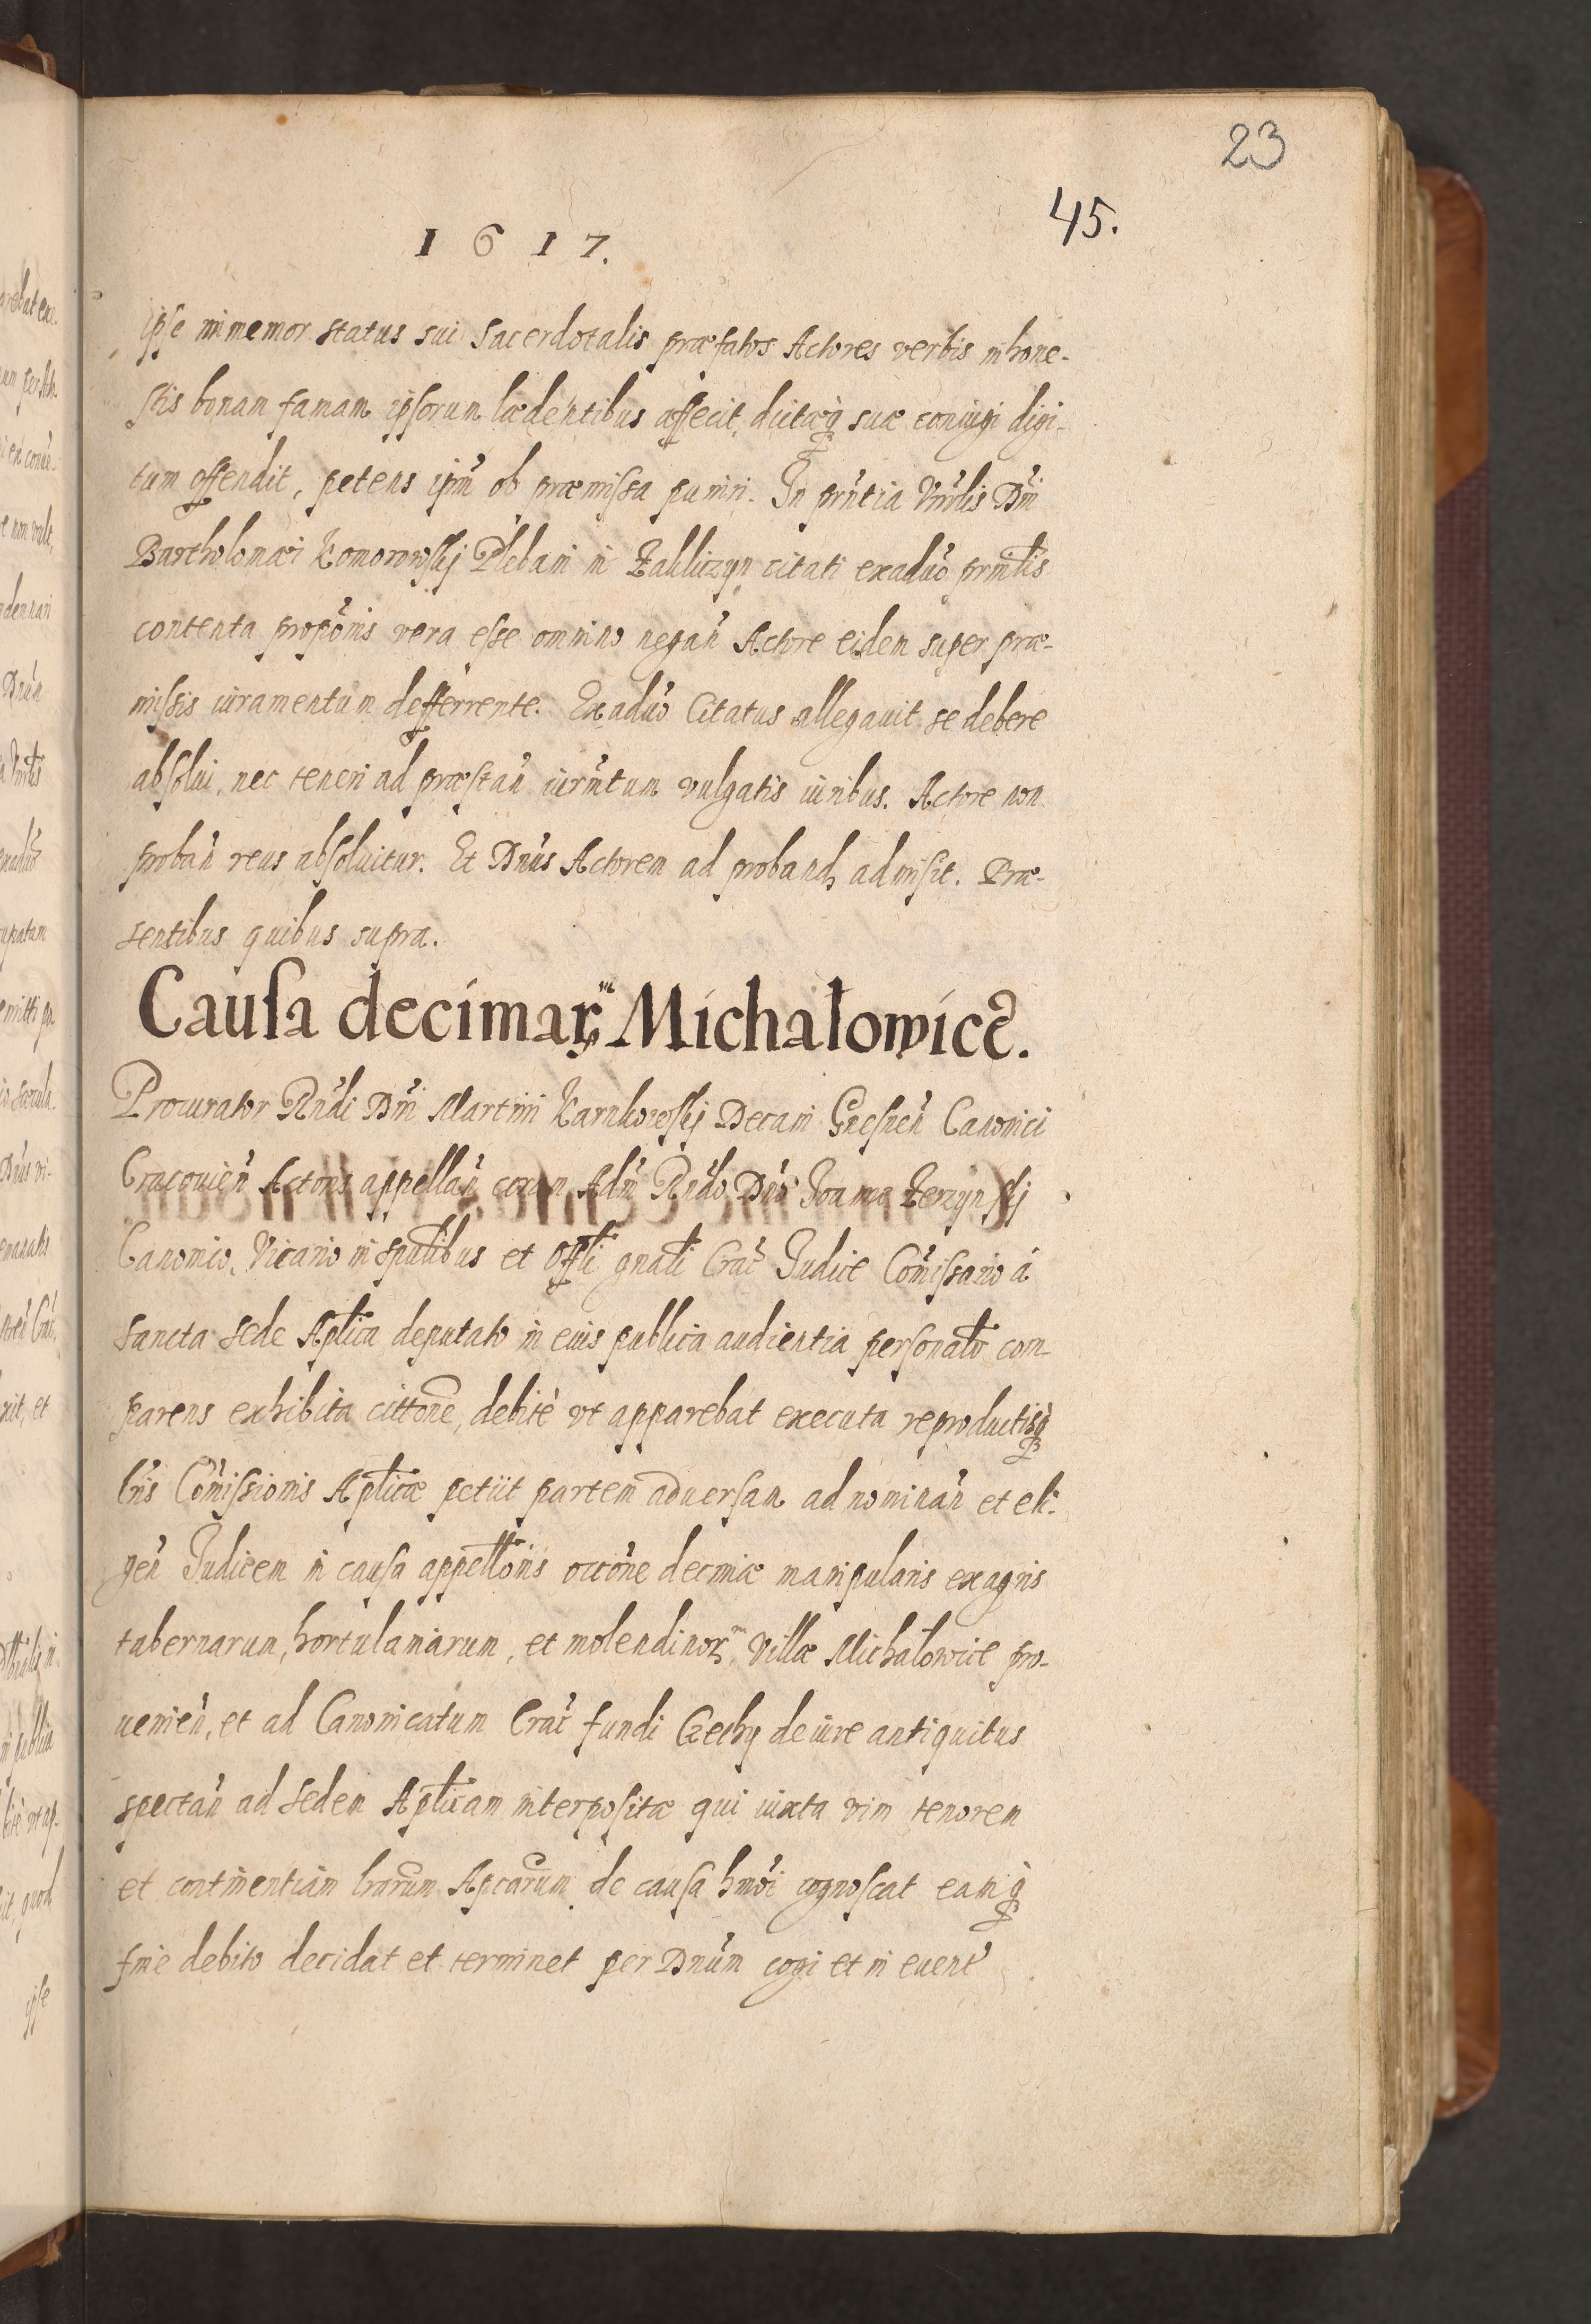 23
45.
1617.
ipse immemor status sui Sacerdotalis præfatos Actores verbis inhone-
stis bonam famam ipsorum lædentibus affecit, dictæq̃ suæ coniugi digi-
tum offendit, petens ipm̃ ob præmissa puniri. In prñtia Vnrlis Dñi
Bartholomæi Komorowskj Plebani in Zakliczyn citati exaduo prin̄lis
contenta propoñis vera esse omnino negañ Actore eidem super præ-
missis iuramentum defferrente. Ex aduo Citatus allegauit se debere
absolui, nec teneri ad præstañ iurm̃tum vulgatis iuribus. Actore non
probañ reus absoluitur. Et Dnús Actorem ad proband, admisit. Præ-
sentibus quibus supra.
Causa decimar̃ Michałowice.
Procurator Rñdi Dñi Martini Karnkowskj Decani Gnesneñ Canonici
Cracouieñ Actoris appellañ coram Adm̃ Rñdo Dño Ioanne
Canonico, Vicario in spũlibus et Offli gnāli Crac̃ Iudice Com̃issario á
Sancta Sede Apl̃ica deputato in eius publica audientia personalr̃ com-
parens exhibita cittone, debitè vt apparebat executa reproductisq̃
lr̃is Com̃issionis Apl̃icæ petiit partem aduersam ad nominañ et eli-
geñ Iudicem in causa appell̃onis occ̃one decimæ manipularis ex agris
tabernarum, hortulaniarum, et molendinor̃, Villæ Michałowice pro-
uenieñ, et ad Canonicatum Crac̃ fundi Czechy de iure antiquitus
spectañ ad Sedem Apl̃icam interpositæ qui iuxta vim tenorem
et continentiam lr̃arum Apcarum de causa hm̃oi cognoscat eamq̃
fine debito decidat et terminet per Dnũm cogi et in euent̃